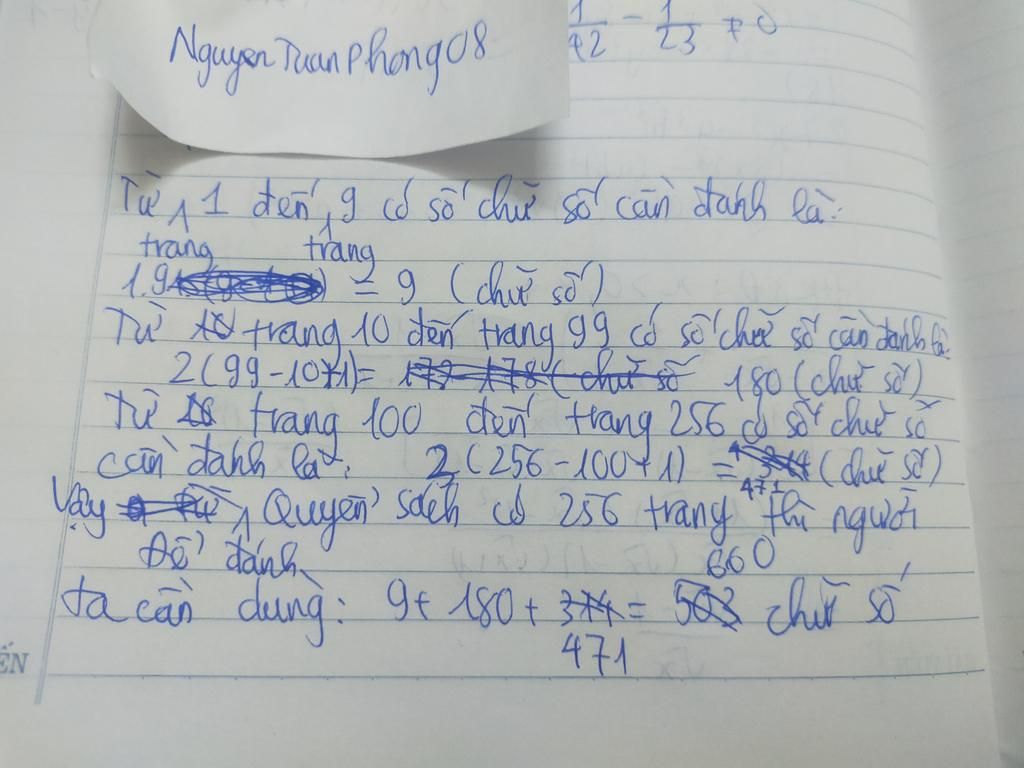 1/42 - 1/23 ≠ 0
NguyenTuanPhong08
Từ trang 1 đến trang 9 có số chữ số cần đánh là:
1.9 = 9 (chữ số)
Từ trang 10 đến trang 99 có số chữ số cần đánh là:
2(99-10+1)= 180 (chữ số)
Từ trang 100 đến trang 256 có số chữ số
cần đánh là: 2(256-100+1) = 471 (chữ số)
Vậy Để đánh Quyển sách có 256 trang thì người
ta cần dùng: 9+ 180+ 471 = 660 chữ số
ẾN